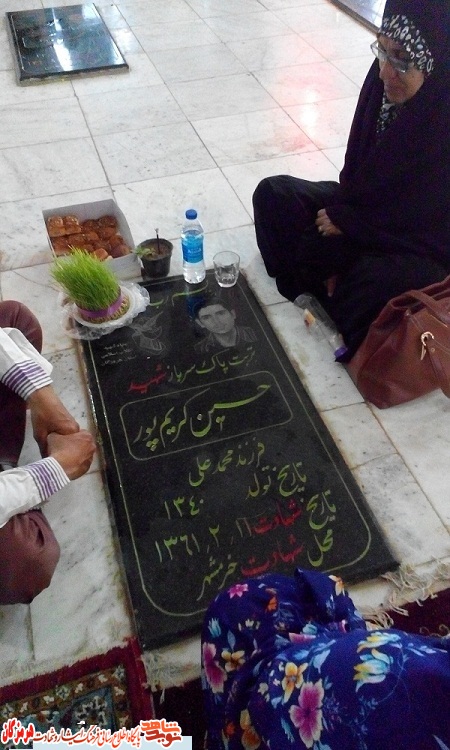 تربت پاک سرباز شهید
حسین کریم پور
فرزند محمد علی
تاریخ تولد ۱۳۴۰
تاریخ شهادت ۱۱٫۲٫۱۳۶۱
محل شهادت خرمشهر
پایگاه اطلاع رسانی فرهنگ ایثار و شهادت هرمزگان
نوید شاهد